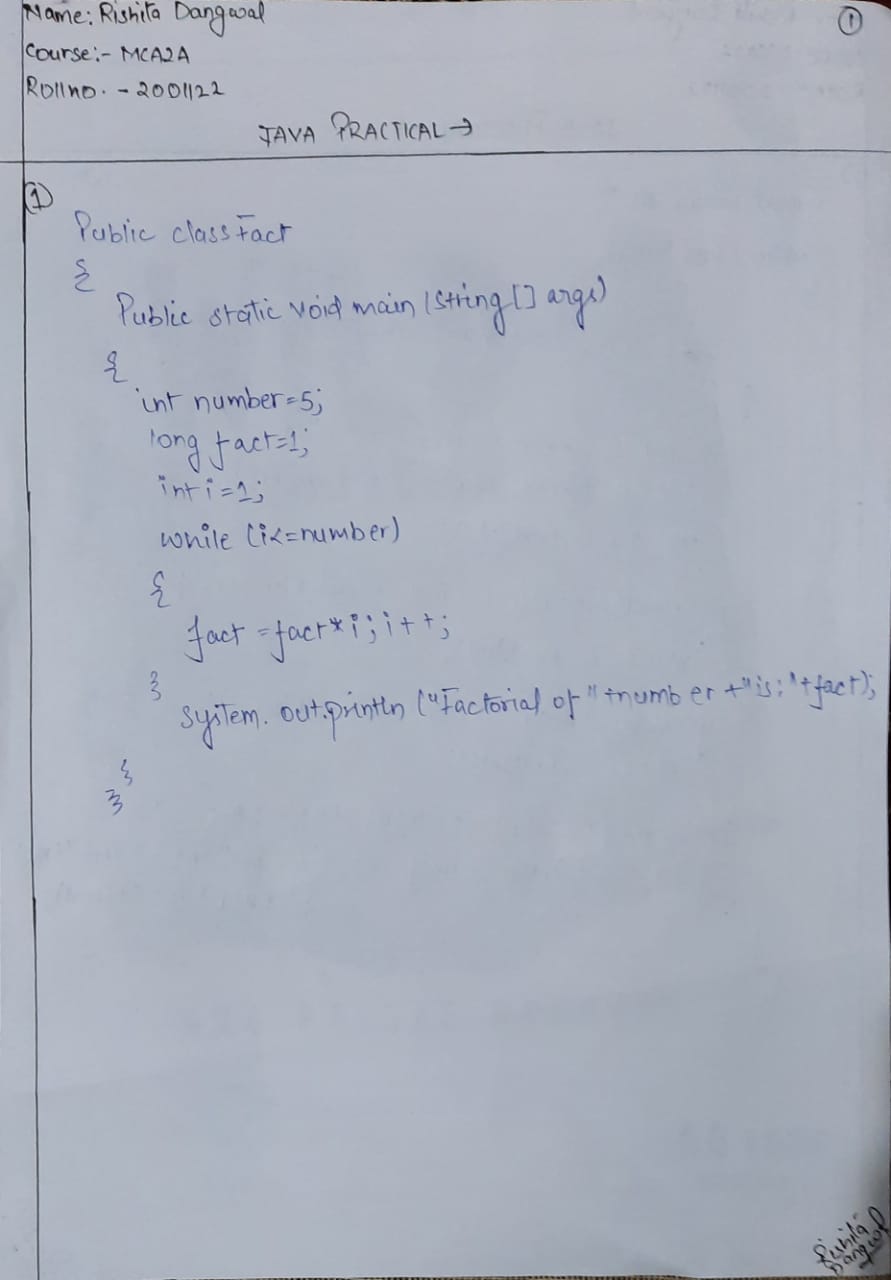 Name: Rishita Dangwal
①
Course:- MCA2A
Rollno. - 2001122
JAVA PRACTICAL →
①
Public class Fact
{
Public static void main (String [] args)
{
int number=5;
long fact=1;
int i=1;
while (i<=number)
{
fact =fact*i; i++;
}
System. out.println ("Factorial of " +number +"is: "+fact);
}
}
Rishita
Dangwal